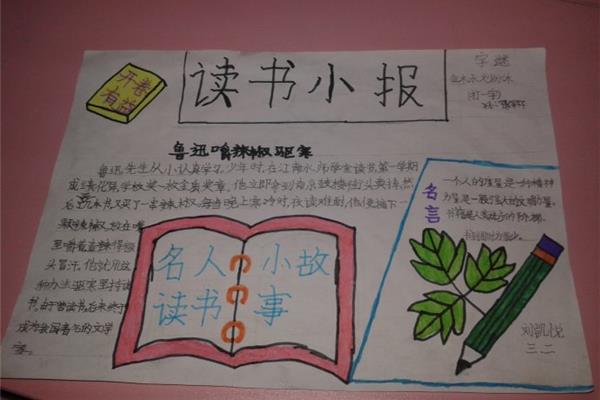 开卷
有益
读书小报
字谜
打一字
鲁迅嚼辣椒驱寒
鲁迅先生从小认真学习。少年时,在江南水师学堂读书,第一学期
成绩优异,学校奖一枚金质奖章。他立即拿到南京鼓楼街头卖掉,然
后买几本书,又买了一串辣椒。每当晚上寒冷时,夜读难耐,他便摘下一
颗辣椒,放在嘴
里嚼着,直辣得额
头冒汗。他就用这
种办法驱寒坚持读
书。由于苦读书,后来终于
成为我国著名的文学
家。
名人小故
读书事
名言
一个人的
书籍是人类进步的阶梯。
刘凯悦
三.二